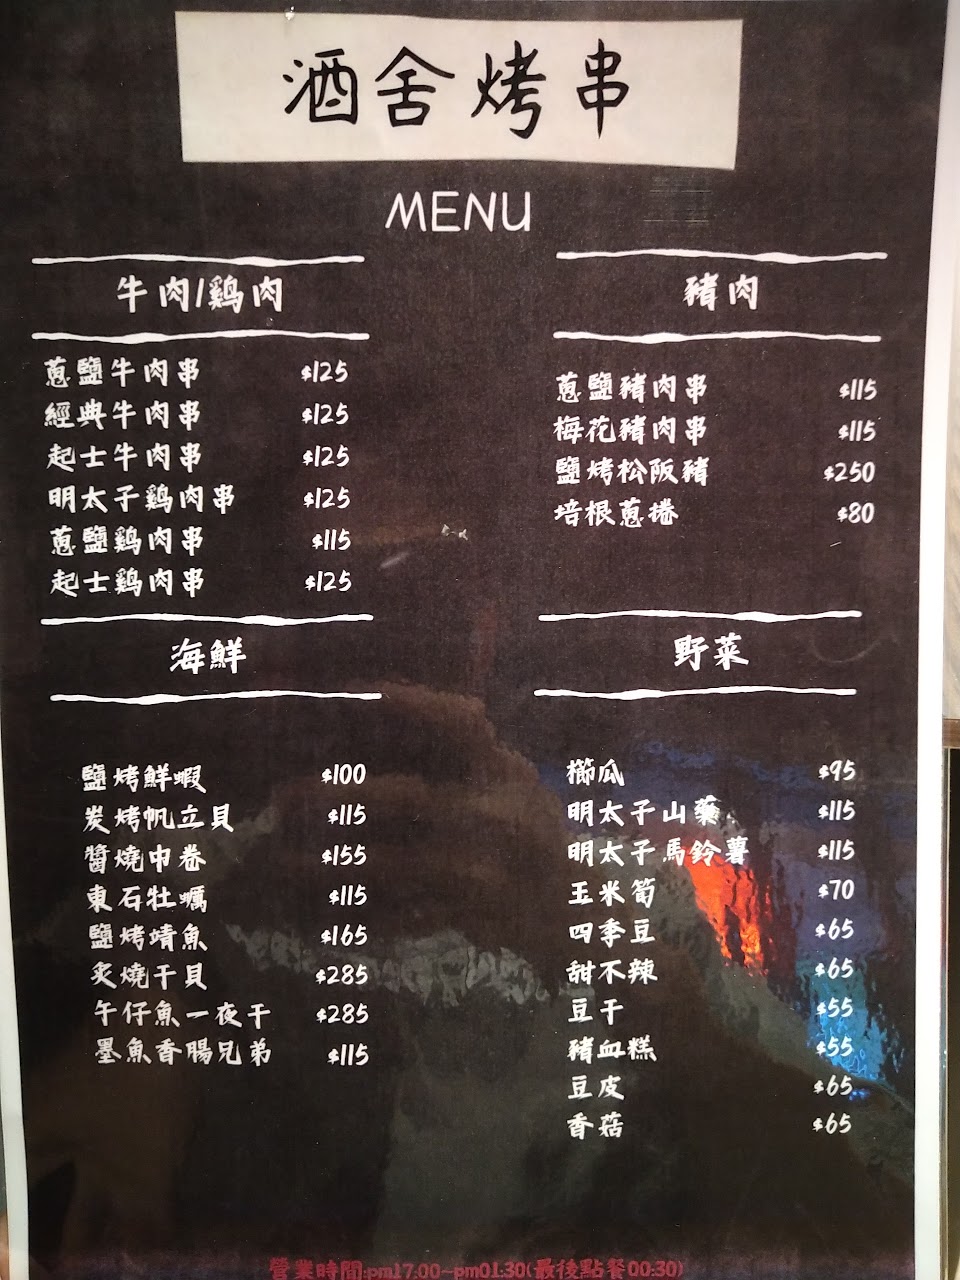 酒舍烤串
MENU
牛肉/鷄肉
蔥鹽牛肉串 $125
經典牛肉串 $125
起士牛肉串 $125
明太子鷄肉串 $125
蔥鹽鷄肉串 $115
起士鷄肉串 $125
豬肉
蔥鹽豬肉串 $115
梅花豬肉串 $115
鹽烤松阪豬 $250
培根蔥捲 $80
海鮮
鹽烤鮮蝦 $100
炭烤帆立貝 $115
醬燒中卷 $155
東石牡蠣 $115
鹽烤鯖魚 $165
炙燒干貝 $285
午仔魚一夜干 $285
墨魚香腸兄弟 $115
野菜
櫛瓜 $95
明太子山藥 $115
明太子馬鈴薯 $115
玉米筍 $70
四季豆 $65
甜不辣 $65
豆干 $55
豬血糕 $55
豆皮 $65
香菇 $65
營業時間:pm17:00~pm01:30(最後點餐00:30)